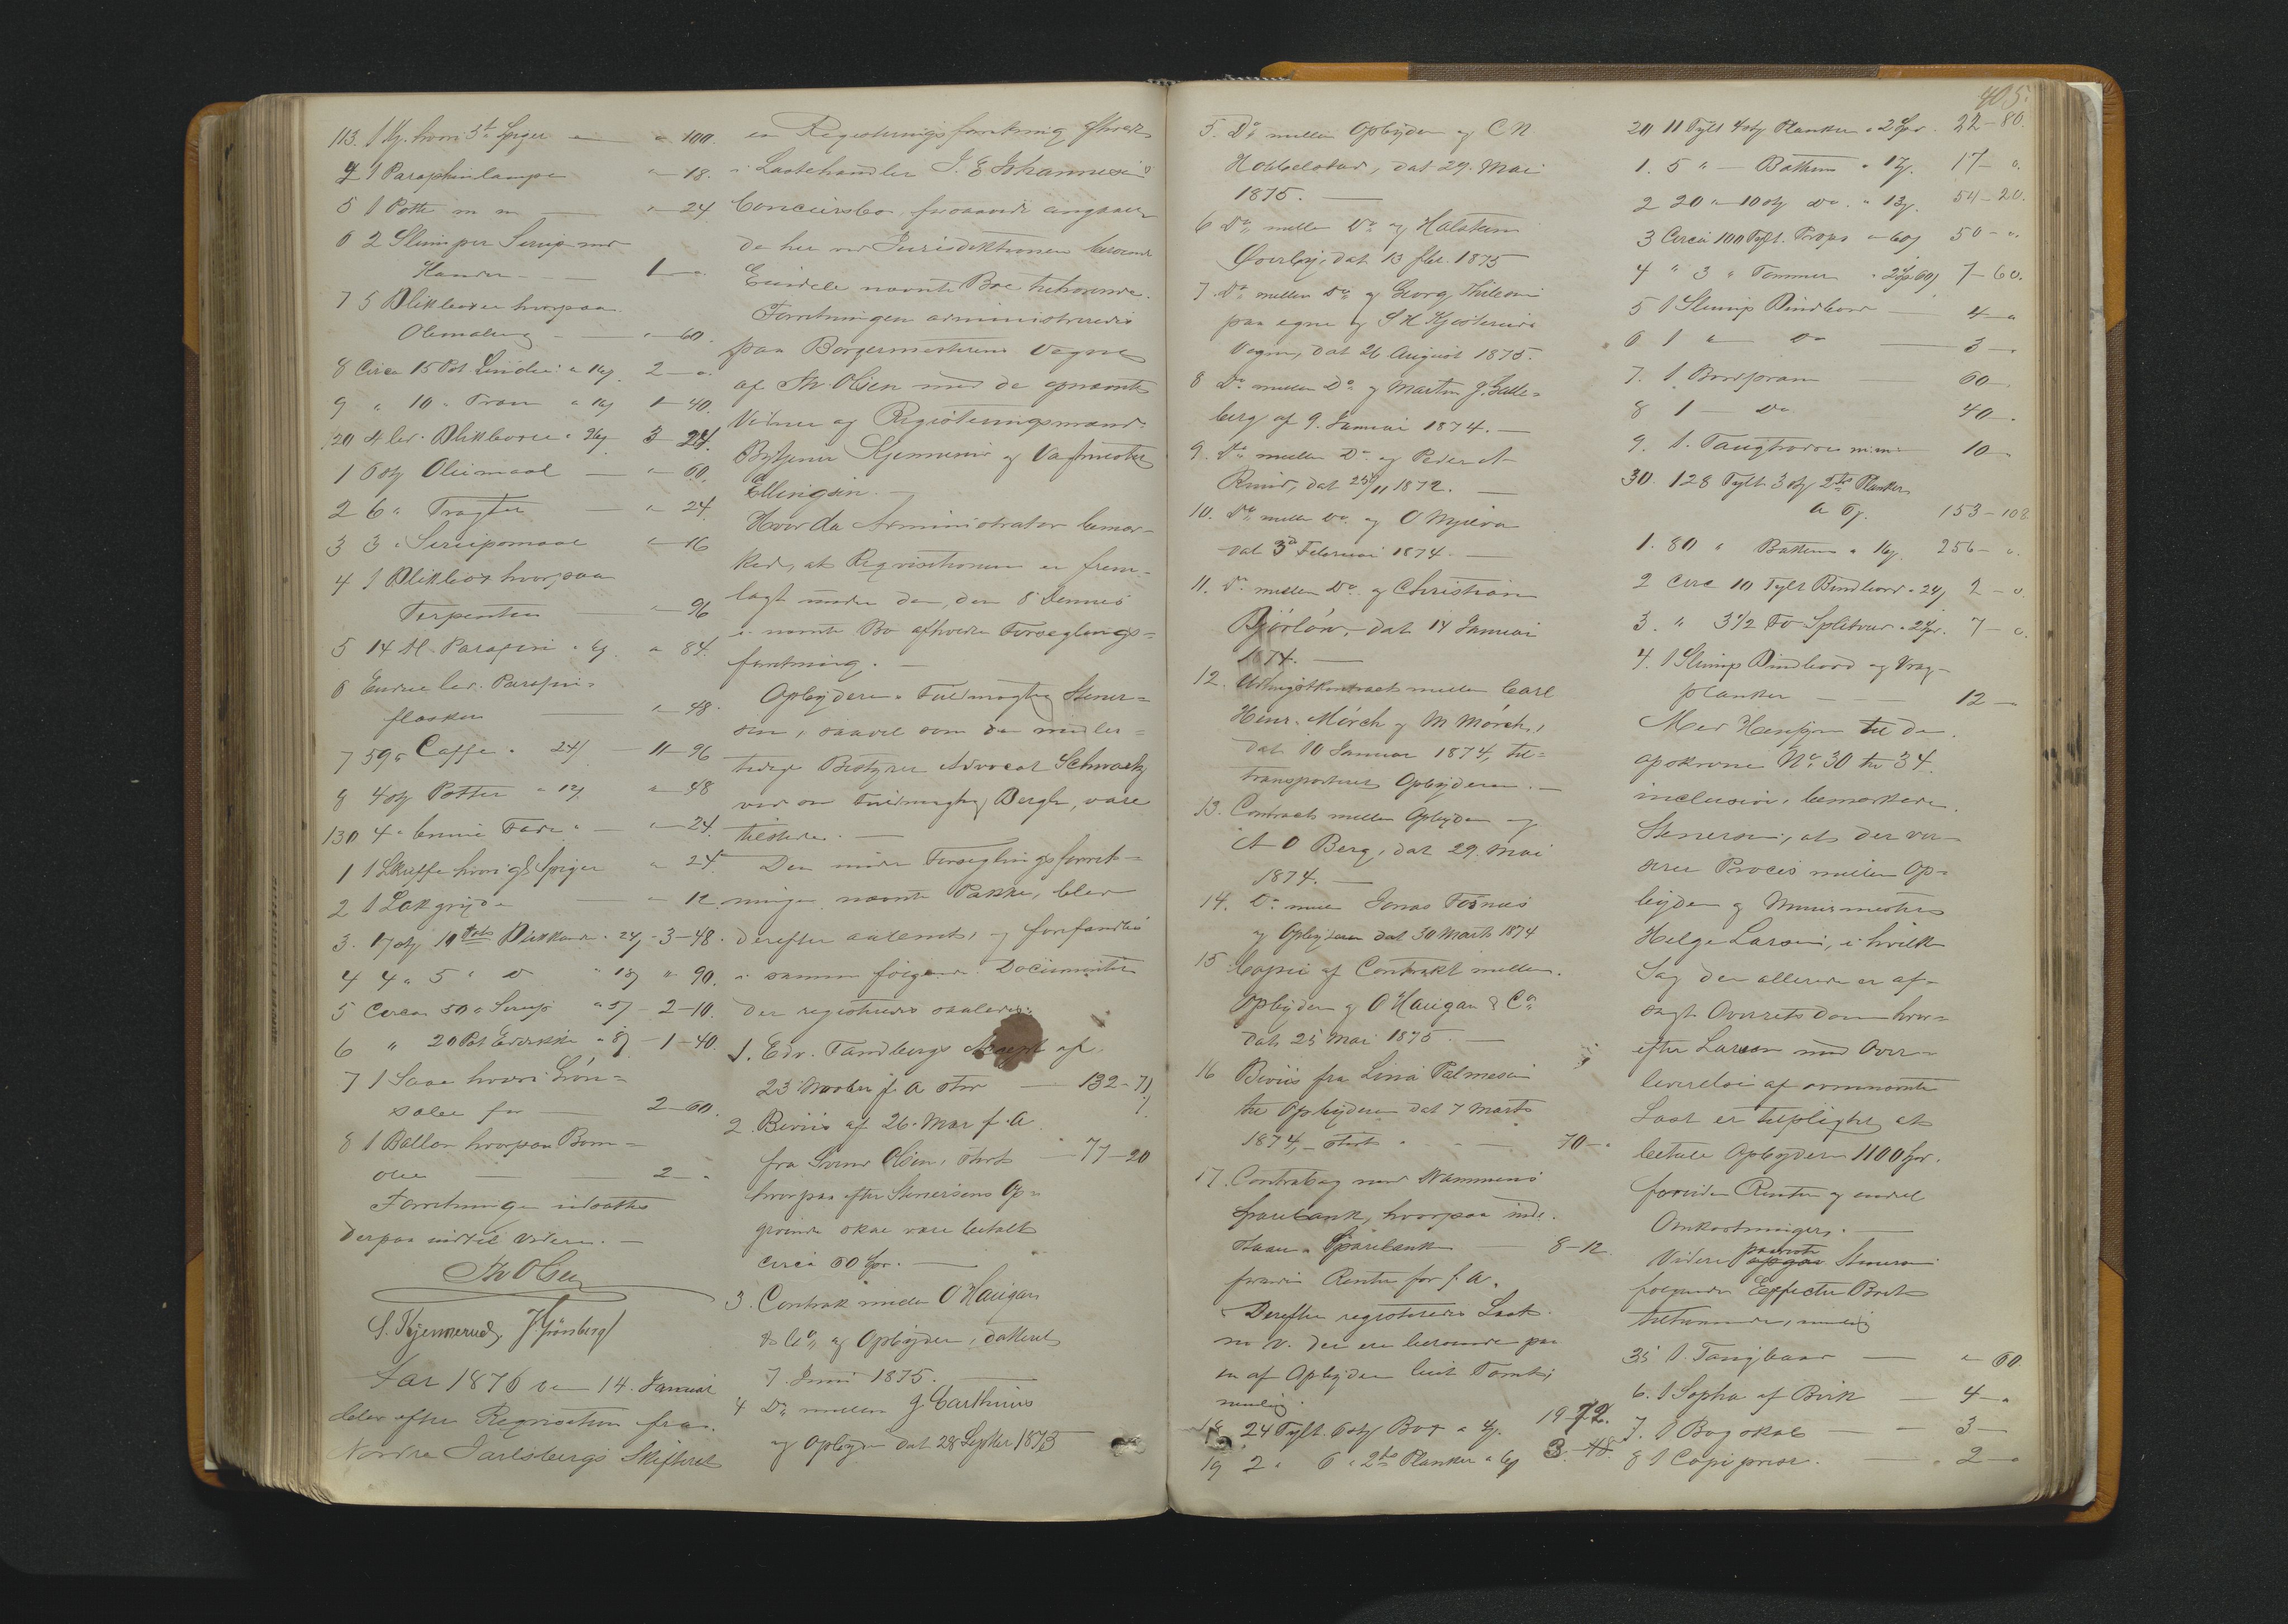 113. 1 Kg. hvori 3" Spiger — " 100.
4 1 Paraphinlampe " — 18.
5 1 Potte m m — " — 24
6 2 Slumper Sirup med
Kander — 1 — "
7 5 Blikboxer hvorpaa
Oliemaling — " — 60.
8 Circa 15 Pot Linolie a 16 β 2 — "
9 " 10 " Tran a 16 β 1 — 40.
120 4 led. Blikboxe a 3 — 24.
1 6 stk Oliemaal — " — 60.
2 6 " Tragter — " — 24.
3 3 " Sirupsmaal " — 16
4 1 Blikbox hvorpaa
Terpentin — " — 96
5 14 Paraffin " 84.
6 Endee led. Parafin-
flasker — " — 48.
7 59 Caffe a 24 β — 11 — 96
8 4 stk Potter a 12 β " — 48
130 4 " Fade — " — 24.
1 1 Skuffe hvori Spiger " 24
2 1 Lakgryde — " — 12
3. 17 stk 10 Pots Blikkander a 24 β — 3 — 48.
4 4 " 5 " Do " 18 β " 90.
5 Circa 50 Sirup a 5 β — 2 — 10.
6 " 20 Pot Eddikke a 8 β — 1 — 40.
7 1 Saae hvori Grøn-
sæbe for — 2 — 60.
8 1 Ballon hvorpaa Bom-
olie — 2 — "
Forretningen udsattes
derpaa indtil Videre. —
Th Olsen
S. Kjemmerud, J Grønberg
Aar 1876 den 14. Januar
blev efter Reqvisition fra
Nordre Jarlsbergs Skifteret
en Registreringsforretning afholdt
i Lasthandler J. E. Johannesens
Concursbo, forsaavidt angaaen-
de her ved Jurisdiktionen beroende
Eiendele nævnte Bo tilhørende.
Forretningen administreredes
paa Borgermesterens Vegne
af Th. Olsen med de opnævnte
Vidner og Registreringsmænd
Bytjener Kjemmerud og Vagtmester
Ellingsen. —
Hvorda Administrator bemær-
ked, at Reqvisitionen er frem-
lagt under den, den 8 Dennes
i nævnte Bo afholdte Forseglings-
forretning. —
Opbyderens Fuldmægtig Stener-
sen, saavel som den midler-
tidige Bestyrer Advocat Schwartz
ved sin Fuldmægtig Bergh, vare
tilstede. —
Den under Forseglingsforret-
ningen nævnte Pakke, blev
derefter aabnet, og forefandtes
i samme følgende Documenter
der registreredes saaledes:
1. Edv. Tandbergs Accept af
23 Novber f. A stor — 132 — 71
2. Beviis af 26. Mai f. A
fra Svend Olsen, stort — 77 — 20
hvorpaa efter Stenersens Op-
givende skal være betalt
circa 60 Spd. —
3. Contrakt mellem O Haugan
& Co. og Opbyder, datteret
7. Juni 1875. —
4 Do. mellem G Carthius
og Opbyder dat 28 Septbr 1875
405.
5. Do. mellem Opbyder og C N
Hobbelstad, dat 29. Mai
1875. —
6 Do. mellem Do. og Halsteen
Overby, dat 13 1875
7. Do. mellem Do. og Georg Thilesen
paa egne og S H Kjosterud's
Vegne, dat 26 August 1875.
8 Do. mellem Do. og Martin G. Galle-
berg af 9. Januar 1874. —
9. Do. mellem Do. og Peder A
Ruud, dat 25/11 1872. —
10. Do. mellem Do. og O Myhra
dat 3d Februar 1874. —
11. Do. mellem Do. og Christian
Bjørløw, dat 14 Januar
1874. —
12. Udhugstkontract mellem Carl
Henr. Mørch og M Mørch,
dat 10 Januar 1874, til-
transporteret Opbyderen. —
13. Contract mellem Opbyder og
A O Berg, dat 29. Mai
1874. —
14. Do. mellem Jonas Fosnæs
og Opbyderen dat 30 Marts 1874
15 Copie af Contrakt mellem
Opbyder og O Haugan & Co.
dat 25 Mai 1875. —
16 Beviis fra Lina Palmesen
til Opbyderen dat 7 Marts
1874, stort — 70 — "
17. Contrabog med Drammens
Sparebank, hvorpaa inde-
staar i Sparebank — 8 — 12.
foruden Renter for f. A.
Derefter registreredes Last
m. v. der ere beroende paa
en af Opbyder leiet Tomt,
nemlig.
18 24 Tylt. 6 stk Bor a 19 — 72.
19 2 " 6 " 2de Planker a 3. — 48.
20 11 Tylt 4 stk Planker a 2 Spd. 22 — 80.
1. 5 " — Battens " 17 — "
2 20 " 10 stk Do. " 54 — 20.
3 Circa 100 Tylt. Props a 60 β 50 — ".
4 " 3 " Tømmer a 2 Spd 60 β 7 — 60.
5 1 Slump Bindbord — 4 — "
6 1 " Do — 3 — "
7. 1 Bordpram 60 — "
8 1 — Do. 40 — "
9. 1. Taughodor m.m. 10 — "
30. 128 Tylt 3 stk 2ds Planker
a 153 — 108
1. 80 " Battens a 256 — "
2 Circa 10 Tylt Bindbord a 24 β 2 — "
3. " 3 1/2 Fv Splitved a 2 Spd. 7 — ".
4. 1 Slump Bindbord og Vrag-
planker — 12 —
Med Hensyn til de
opskrevne No. 30 til 34
inclusive, bemærkede
Stenersen, at der ver-
serer Proces mellem Op-
byder og Muurmester
Helge Larsen, i hvilken
Sag der allerede er af-
sagt Overretsdom hvor-
efter Larsen mod Over-
leverelse af ovennævnte
Last er tilpligtet at
betale Opbyderen 1100 Spd.
foruden Renter og endel
Omkostninger. —
Videre paaviste Stenersen
følgende Effecter Boet
tilhørende, nemlig
35 1. Taugbaar — " 60.
6. 1 Sopha af Birk — 4 — "
7. 1 Bogskab — 3 —
8 1 Copipresse. — 2 — "